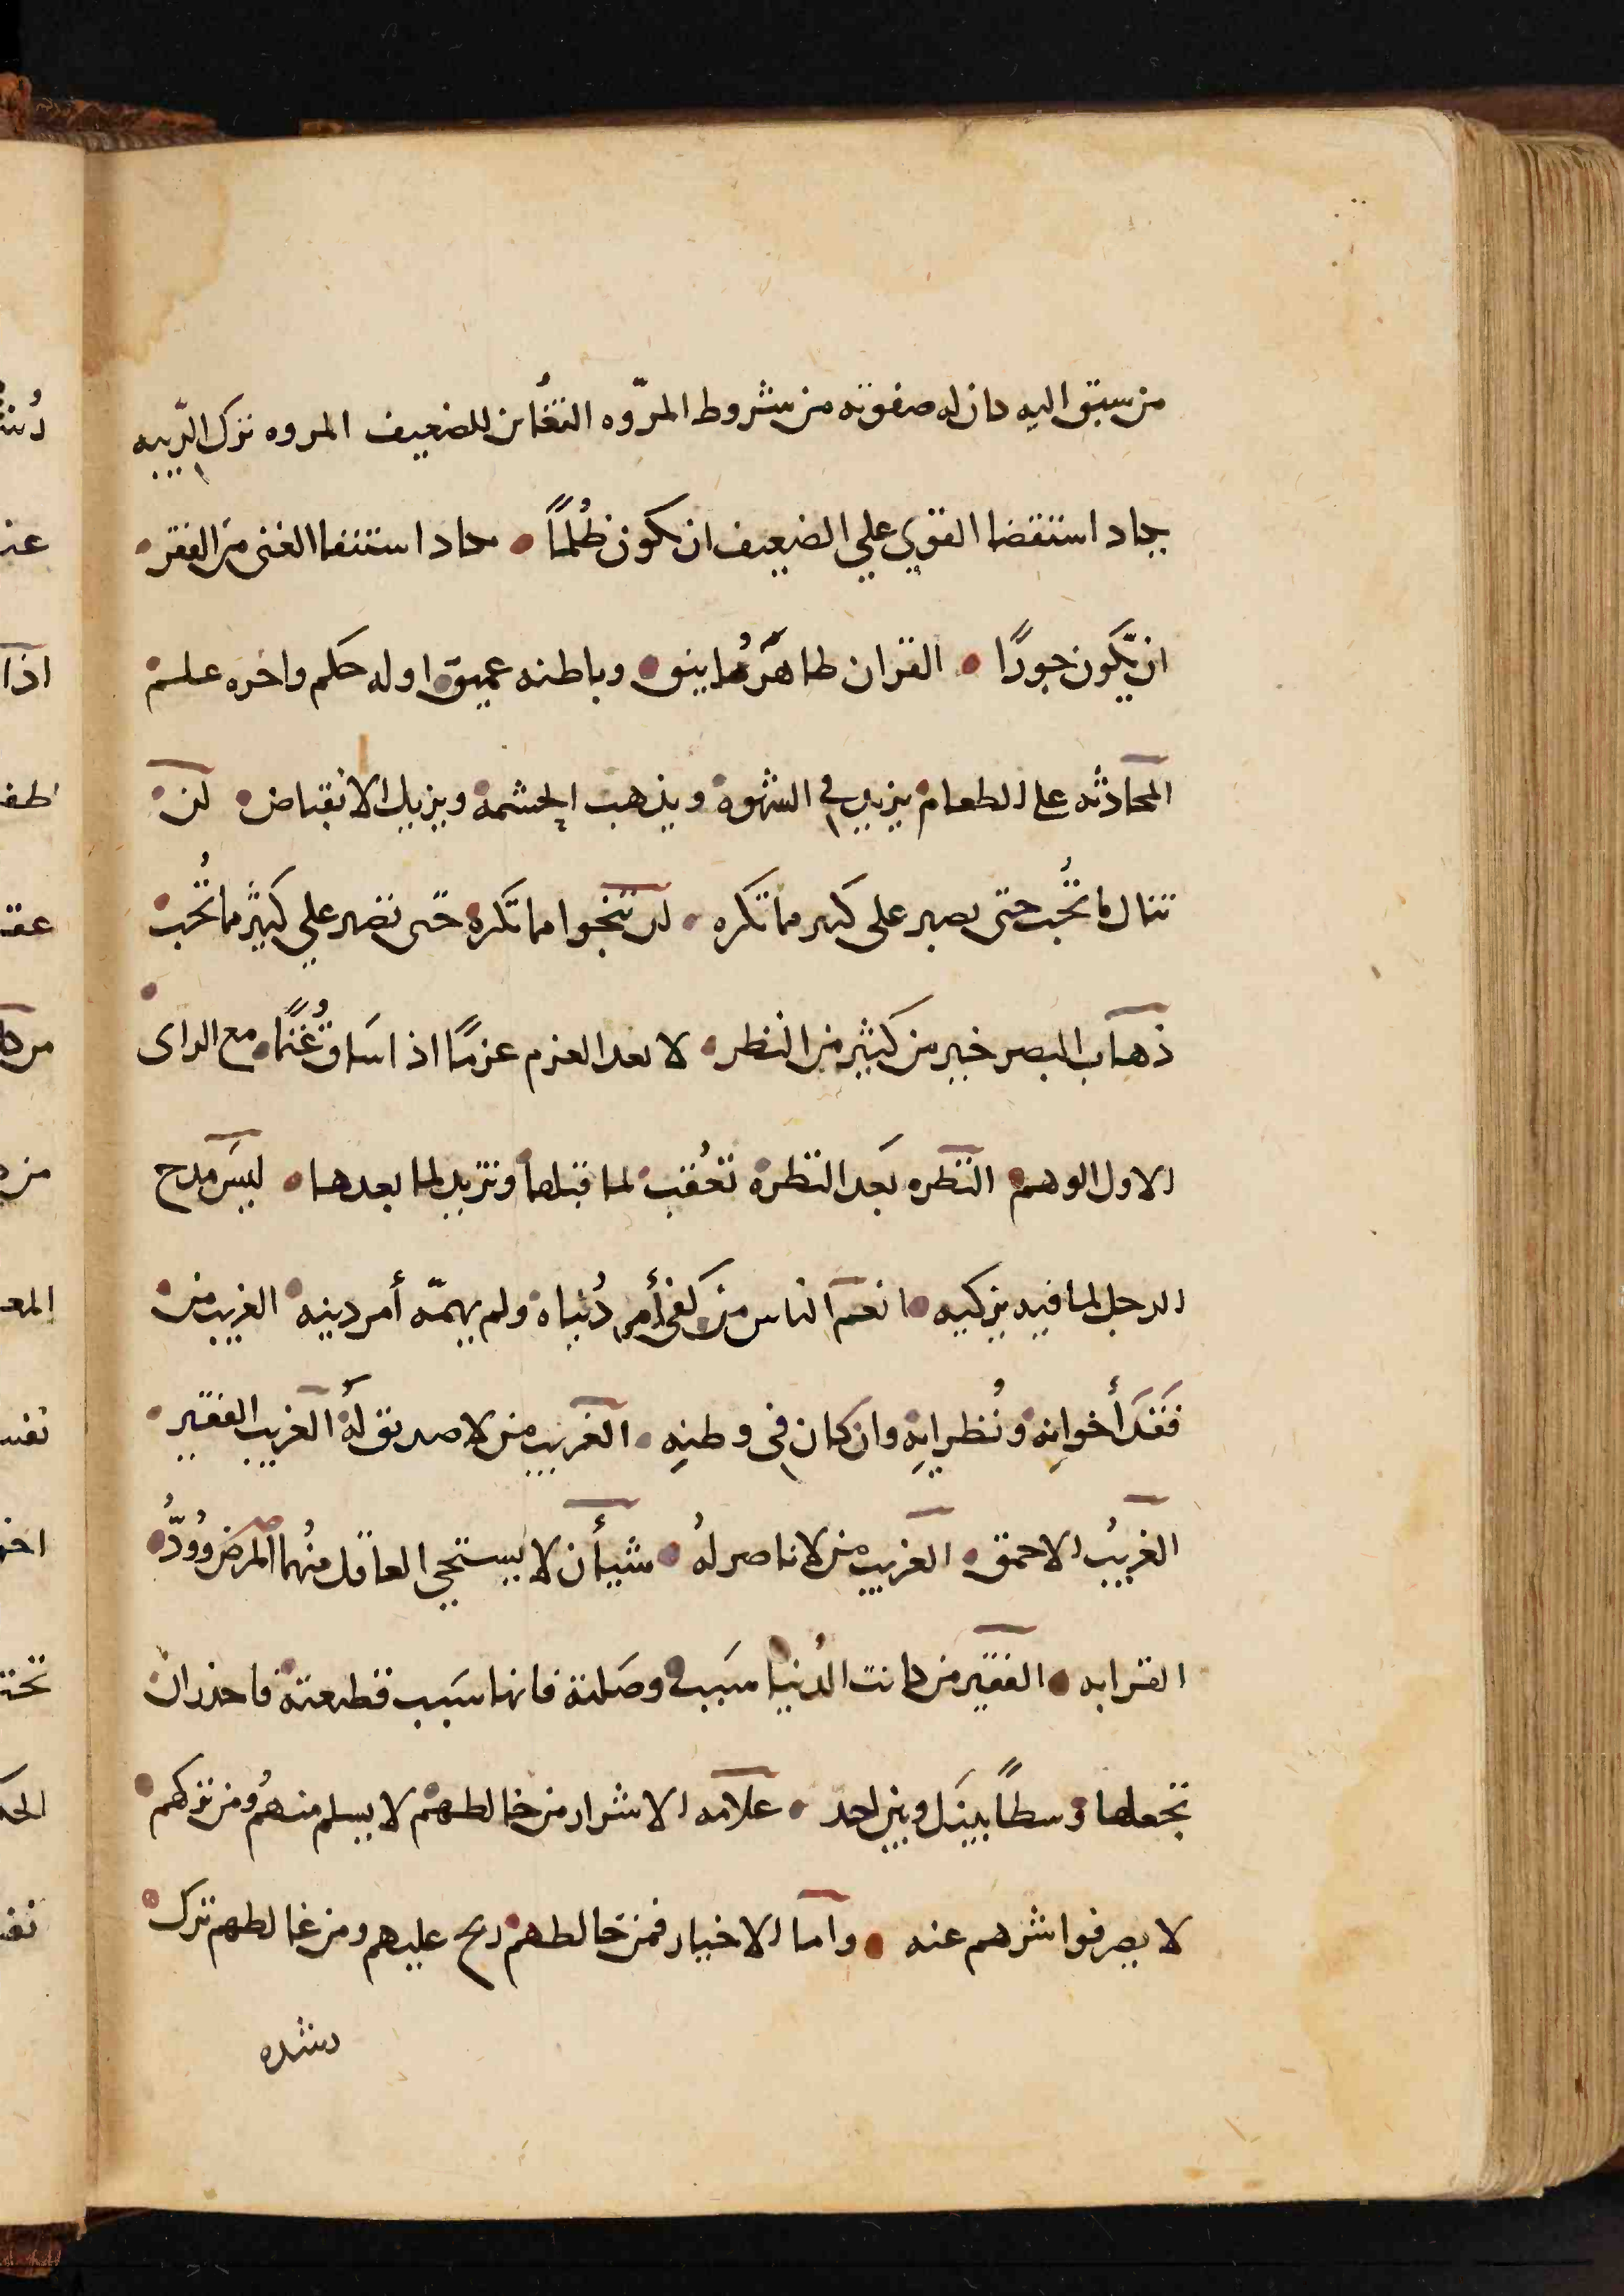 من سبق اليه كان له صفوته من شروط المرّوه التغُابن للضعيف المروه ترك الرّيبه
يكاد استقضا القوي علي الضعيف ان يكون ظُلماً • يكاد استقضا الغنى من الفقر •
ان يّكون جورًا • القران ظاهره انيق • وباطنه عميق اوله حكم واخره علم
المحادثه على الطعام يزيد في الشهوة ويذهب الحشمة ويزيل الانقباض • لن
تنال ما تُحب حتى تصبر على كثير مما تكره • لن تنجوا مما تكره حتى تصبر علي كثير مما تُحب
ذهاب البصر خير من كثير من النظر • لا تعد العزم عزمًا اذا ساق غُنمًا • مع الراى
الاول الوهم • النظره بعد النظرة تعُقب لما قبلها وتزيد لما بعدها • ليس مدح
الرجل لما فيه يزكيه • انعم الناس من كفى أمر دُنياه ولم يهمّه أمر دينه الغريب من
فَقَدَ أخوانه ونُظرايِهِ وان كان فى وطنِهِ • الغريب من لا صديق لهُ الغريب الفقير •
الغريبُ الاحمق • الغريب من لا ناصر لهُ • شيأن لا يستحي العاقل منهُما المرض ووُدُّ
القرابه • الفقير من كانت الدُنيا سَبب وصَلته فانها سَبب قطيعته فاحذر ان
تجعلها وسطًا بينَك وبين احد • علامه الاشرار من خالطهم لا يسلم منهم ومن تركهم
لا يصرفوا شرهم عنه • واما الاخيار فمن خالطهم ربح عليهم ومن غالطهم ترك
رشده